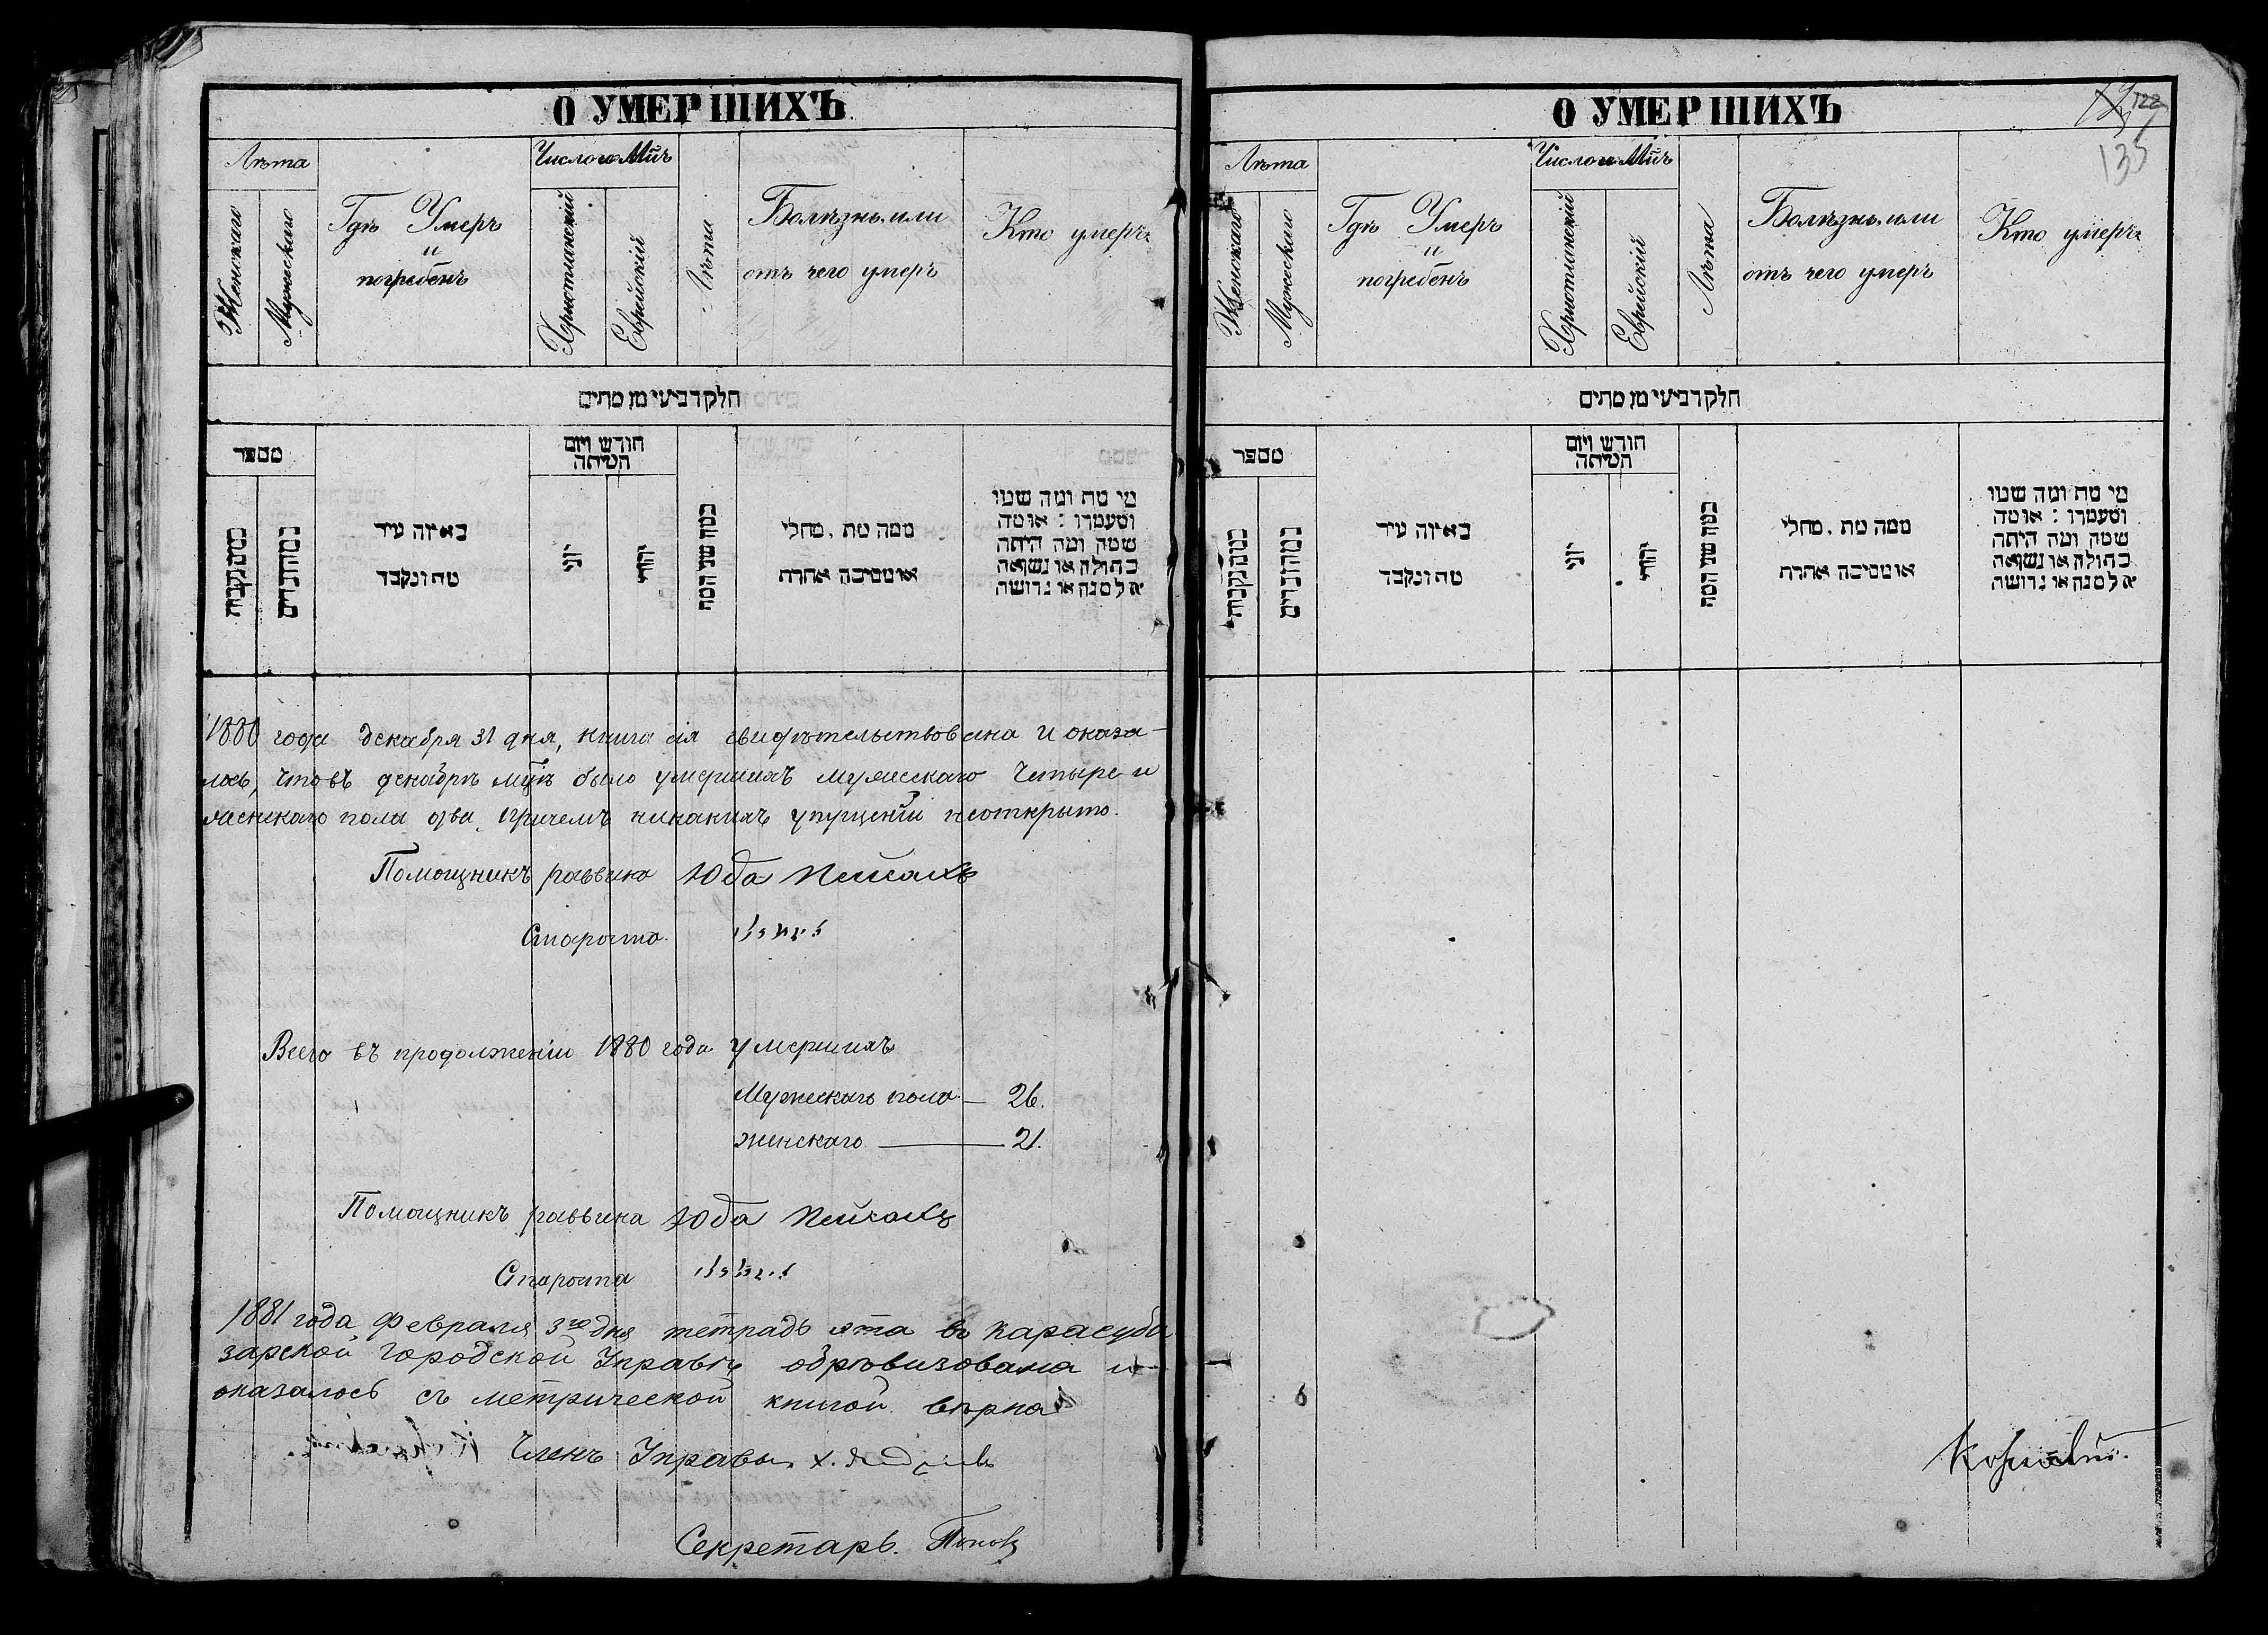 О УМЕРШИХЪ
Лѣта
Женскаго
Мужескаго
Гдѣ Умеръ
и
погребенъ
Число и Мѣсѣ
Христіанскій
Еврейскій
Лѣта
Болѣзнь или
отъ чего умеръ
Кто умеръ
חלק רביעי מן מתים
מספר
במהנקבות
במהזכרים
באיזה עיר
מת ונקבר
חודש ויום
המיתה
יוני
יהודי
כמה שני המת
ממה מת . מחלי
או מסיבה אחרת
מי מת ומה שמו
ומעמדו : או מה
שמה ומה היתה
בתולה או נשואה
אלמנה או גרושה
1880 года декабря 31 дня, книга сія свидѣтельствована и оказа-
лось, что въ декабрѣ мцѣ было умершихъ мужескаго четыре и
женскаго пола два, причемъ никакихъ упущеній неоткрыто.
Помощникъ раввина Юда Пейсахъ
Староста
Всего въ продолженіи 1880 года умершихъ
Мужескаго пола — 26.
женскаго — 21.
Помощникъ раввина Юда Пейсахъ
Староста
1881 года Февраля 3го дня тетрадь эта въ Карасуба
зарской Городской Управѣ обревизована и
оказалось съ метрической книгой вѣрна
Членъ Управы
Секретарь. Поповъ
О УМЕРШИХЪ
122
135
Лѣта
Женскаго
Мужескаго
Гдѣ Умеръ
и
погребенъ
Число и Мѣсѣ
Христіанскій
Еврейскій
Лѣта
Болѣзнь или
отъ чего умеръ
Кто умеръ
חלק רביעי מן מתים
מספר
במהנקבות
במהזכרים
באיזה עיר
מת ונקבר
חודש ויום
המיתה
יוני
יהודי
כמה שני המת
ממה מת . מחלי
או מסיבה אחרת
מי מת ומה שמו
ומעמדו : או מה
שמה ומה היתה
בתולה או נשואה
אלמנה או גרושה